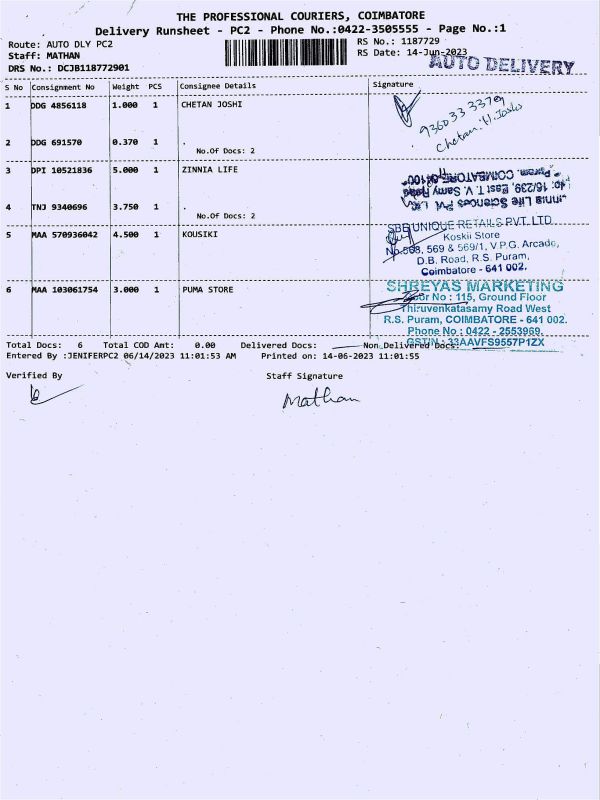 THE PROFESSIONAL COURIERS, COIMBATORE
Delivery Runsheet - PC2 - Phone No.:0422-3505555 - Page No.:1
Route: AUTO DLY PC2 RS No.: 1187729
Staff: MATHAN RS Date: 14-Jun-2023
DRS No.: DCJB118772901
AUTO DELIVERY
S No Consignment No Weight PCS Consignee Details Signature
1 DDG 4856118 1.000 1 CHETAN JOSHI
9360333379
Chetan.H.Joshi
2 DDG 691570 0.370 1 .
No.Of Docs: 2
3 DPI 10521836 5.000 1 ZINNIA LIFE
Puram, COIMBATORE
16/239, East T.V. Samy Road
Life Sciences Pvt. Ltd.
4 TNJ 9340696 3.750 1 .
No.Of Docs: 2
5 MAA 570936042 4.500 1 KOUSIKI
UNIQUE RETAILS PVT. LTD.
Koskii Store
No.568, 569 & 569/1, V.P.G. Arcade,
D.B. Road, R.S. Puram,
Coimbatore - 641 002.
6 MAA 103061754 3.000 1 PUMA STORE
SHREYAS MARKETING
Door No : 115, Ground Floor
Thiruvenkatasamy Road West
R.S. Puram, COIMBATORE - 641 002.
Phone No : 0422 - 2553969.
GSTIN : 33AAVFS9557P1ZX
Total Docs: 6 Total COD Amt: 0.00 Delivered Docs: Non Delivered Docs:
Entered By :JENIFERPC2 06/14/2023 11:01:53 AM Printed on: 14-06-2023 11:01:55
Verified By Staff Signature
Mathan